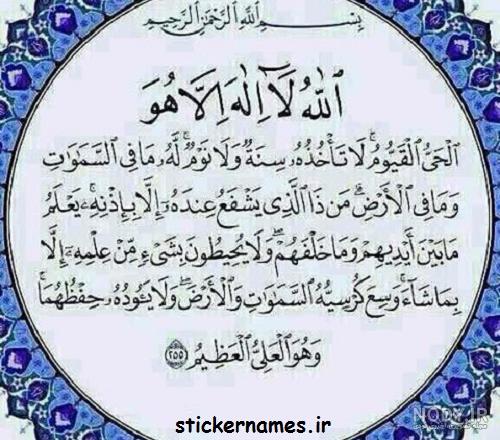 بِسْمِ ٱللَّهِ ٱلرَّحْمَٰنِ ٱلرَّحِيمِ
ٱللَّهُ لَآ إِلَٰهَ إِلَّا هُوَ
ٱلْحَىُّ ٱلْقَيُّومُ ۚ لَا تَأْخُذُهُۥ سِنَةٌ وَلَا نَوْمٌ ۚ لَّهُۥ مَا فِى ٱلسَّمَٰوَٰتِ
وَمَا فِى ٱلْأَرْضِ ۗ مَن ذَا ٱلَّذِى يَشْفَعُ عِندَهُۥٓ إِلَّا بِإِذْنِهِۦ ۚ يَعْلَمُ
مَا بَيْنَ أَيْدِيهِمْ وَمَا خَلْفَهُمْ ۖ وَلَا يُحِيطُونَ بِشَىْءٍ مِّنْ عِلْمِهِۦٓ إِلَّا
بِمَا شَآءَ ۚ وَسِعَ كُرْسِيُّهُ ٱلسَّمَٰوَٰتِ وَٱلْأَرْضَ ۖ وَلَا يَـُٔودُهُۥ حِفْظُهُمَا ۚ
وَهُوَ ٱلْعَلِىُّ ٱلْعَظِيمُ ﴿٢٥٥﴾
stickernames.ir
NODY.IR